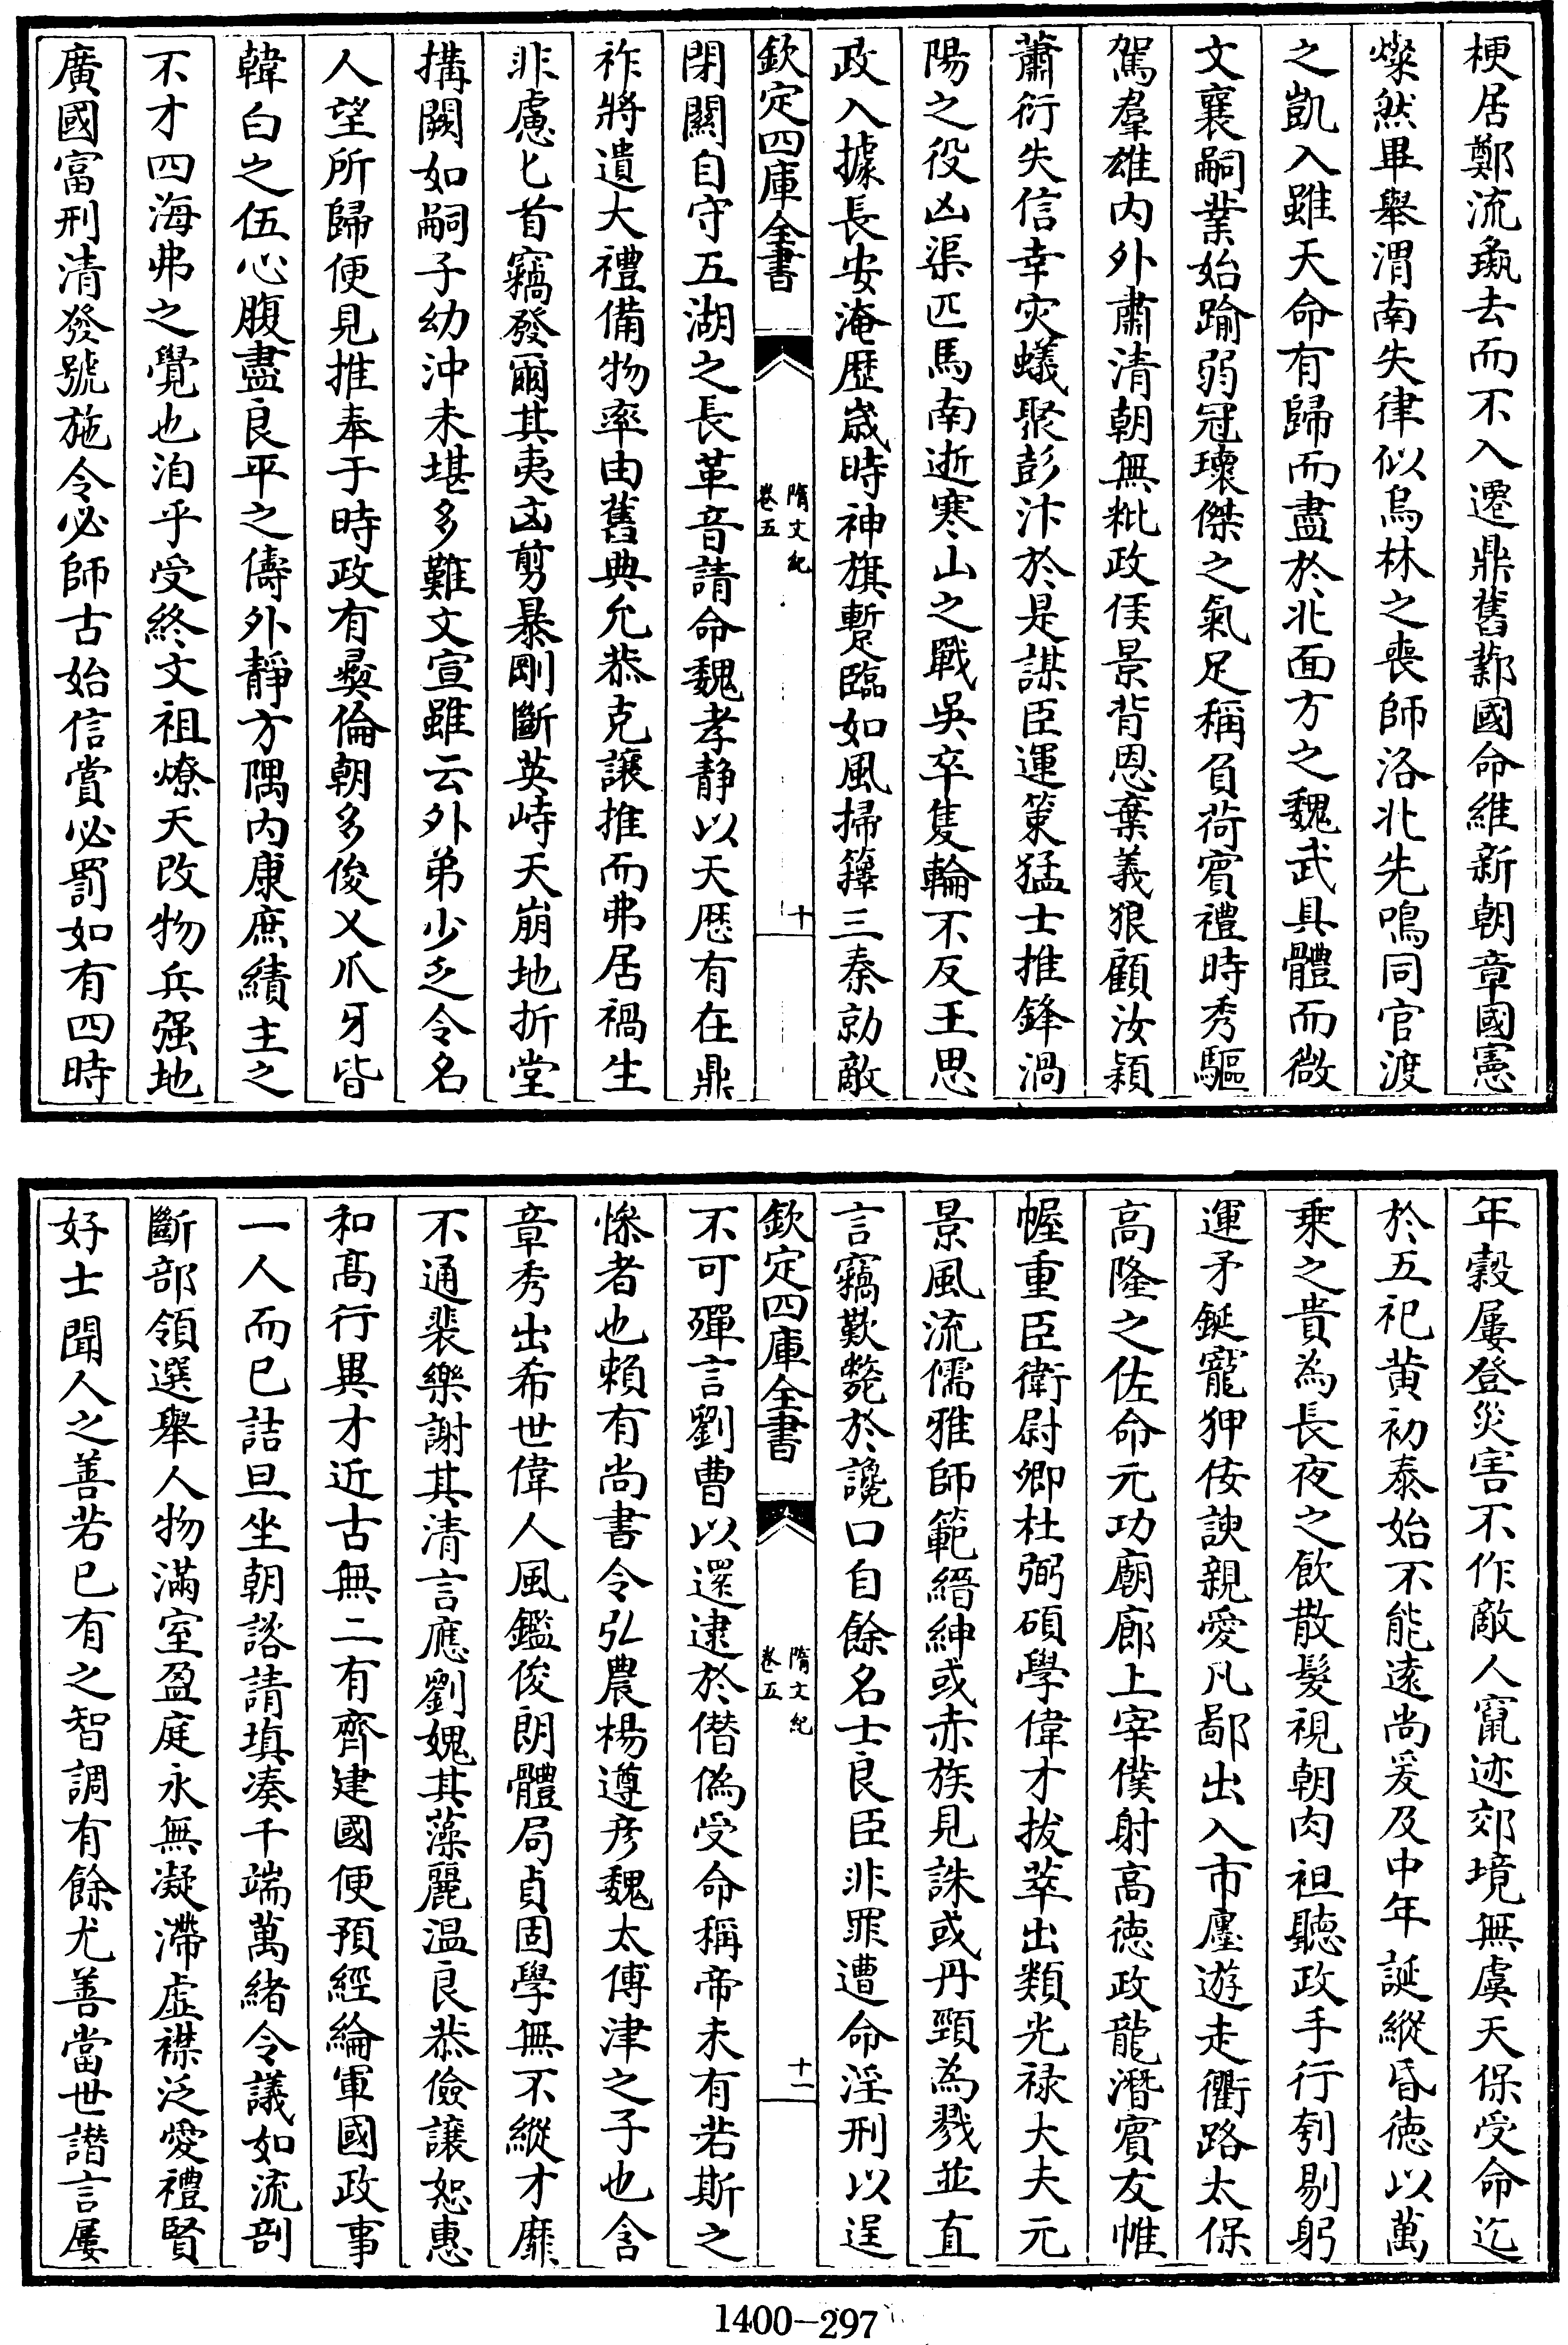 梗居鄭流彘去而不入遷鼎舊鄴國命維新朝章國憲
燦然畢舉渭南失律似烏林之喪師洛北先鳴同官渡
之凱入雖天命有歸而盡於北面方之魏武具體而微
文襄嗣業始踰弱冠瓌傑之氣足稱負荷賓禮時秀驅
駕羣雄内外肅清朝無粃政侯景背恩棄義狼顧汝潁
蕭衍失信幸灾蟻聚彭汴於是謀臣運策猛士推鋒渦
陽之役凶渠匹馬南逝寒山之戰吳卒隻輪不反王思
政入據長安淹歷歲時神旗蹔臨如風掃籜三秦勍敵
欽定四庫全書
隋文紀
卷五
十
閉關自守五湖之長革音請命魏孝静以天厯有在鼎
祚將遺大禮備物率由舊典允恭克讓推而弗居禍生
非慮匕首竊發爾其夷凶剪暴剛斷英峙天崩地折堂
搆闕如嗣子幼沖未堪多難文宣雖云外弟少乏令名
人望所歸便見推奉于時政有彛倫朝多俊乂爪牙皆
韓白之伍心腹盡良平之儔外靜方隅内康庶績主之
不才四海弗之覺也洎乎受終文祖燎天改物兵强地
廣國富刑清發號施令必師古始信賞必罰如有四時
年穀屢登災害不作敵人竄迹郊境無虞天保受命迄
於五祀黄初泰始不能逺尚爰及中年誕縱昏徳以萬
乗之貴為長夜之飲散髮視朝肉袒聽政手行刳剔躬
運矛鋋寵狎佞諛親愛凡鄙出入市廛遊走衢路太保
高隆之佐命元功廟廊上宰僕射高徳政龍潛賓友帷
幄重臣衛尉卿杜弼碩學偉才拔萃出類光禄大夫元
景風流儒雅師範縉紳或赤族見誅或丹頸為戮並直
言竊歎斃於讒口自餘名士良臣非罪遭命淫刑以逞
欽定四庫全書
隋文紀
卷五
十一
不可殫言劉曹以還逮於僭偽受命稱帝未有若斯之
慘者也賴有尚書令弘農楊遵彦魏太傅津之子也含
章秀出希世偉人風鑑俊朗體局貞固學無不縱才靡
不通裴樂謝其清言應劉媿其藻麗温良恭儉讓恕惠
和髙行異才近古無二有齊建國便預經綸軍國政事
一人而已詰旦坐朝諮請填湊千端萬緒令議如流剖
斷部領選舉人物滿室盈庭永無凝滯虛襟泛愛禮賢
好士聞人之善若已有之智調有餘尤善當世譖言屢
1400-297